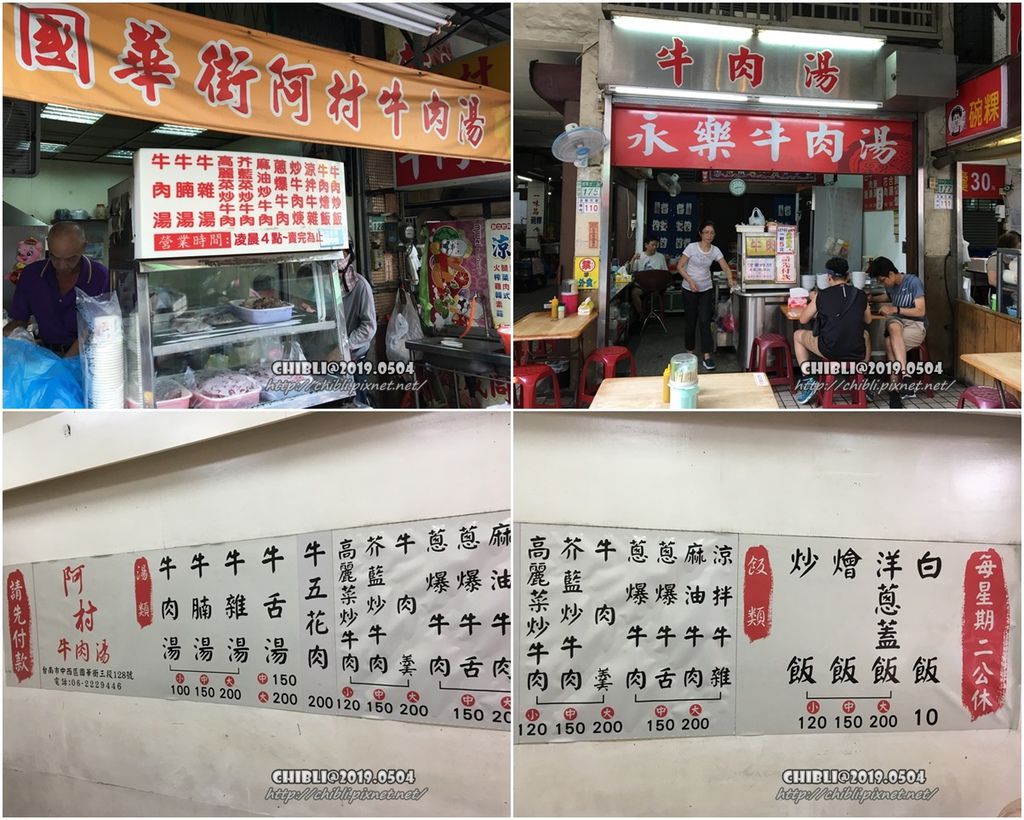 國華街阿村牛肉湯
牛肉湯
牛腩湯
牛雜湯
高麗菜炒牛肉
芥藍菜炒牛肉
麻油炒牛肉
蔥爆牛肉
炒牛肉羹
涼拌牛雜
牛肉燴飯
牛肉炒飯
營業時間：凌晨4點~賣完為止
涼
CHIBLI@2019.0504
http://chibli.pixnet.net/
牛肉湯
永樂牛肉湯
碗粿
30
175
110
177
CHIBLI@2019.0504
http://chibli.pixnet.net/
請先付款
阿村
牛肉湯
台南市中西區國華街三段128號
電話:06-2229446
湯類
牛肉湯
牛腩湯
牛雜湯
小 中 大
100 150 200
牛舌湯
中 150
大 200
牛五花肉
200
高麗菜炒牛肉
芥藍炒牛肉
牛肉羹
小 中 大
120 150 200
蔥爆牛肉
蔥爆牛舌
麻油牛肉
中 大
150 20
CHIBLI@2019.0504
http://chibli.pixnet.net/
高麗菜炒牛肉
芥藍炒牛肉
牛肉羹
小 中 大
120 150 200
蔥爆牛肉
蔥爆牛舌
麻油牛肉
涼拌牛雜
中 大
150 200
飯類
炒飯
燴飯
洋蔥蓋飯
小 中 大
120 150 200
白飯
10
每星期二公休
CHIBLI@2019.0504
http://chibli.pixnet.net/